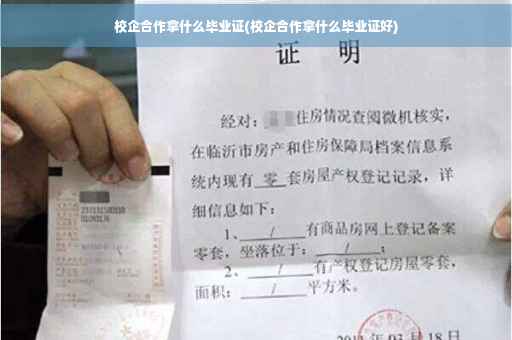 校企合作拿什么毕业证(校企合作拿什么毕业证好)
证 明
经对：住房情况查阅微机核实，
在临沂市房产和住房保障局档案信息系
统内现有 零 套房屋产权登记记录，详
细信息如下：
1、 / 有商品房网上登记备案
零套，坐落位于： / ；
2、 / 有产权登记房屋零套，
面积： / 平方米。
03月18日